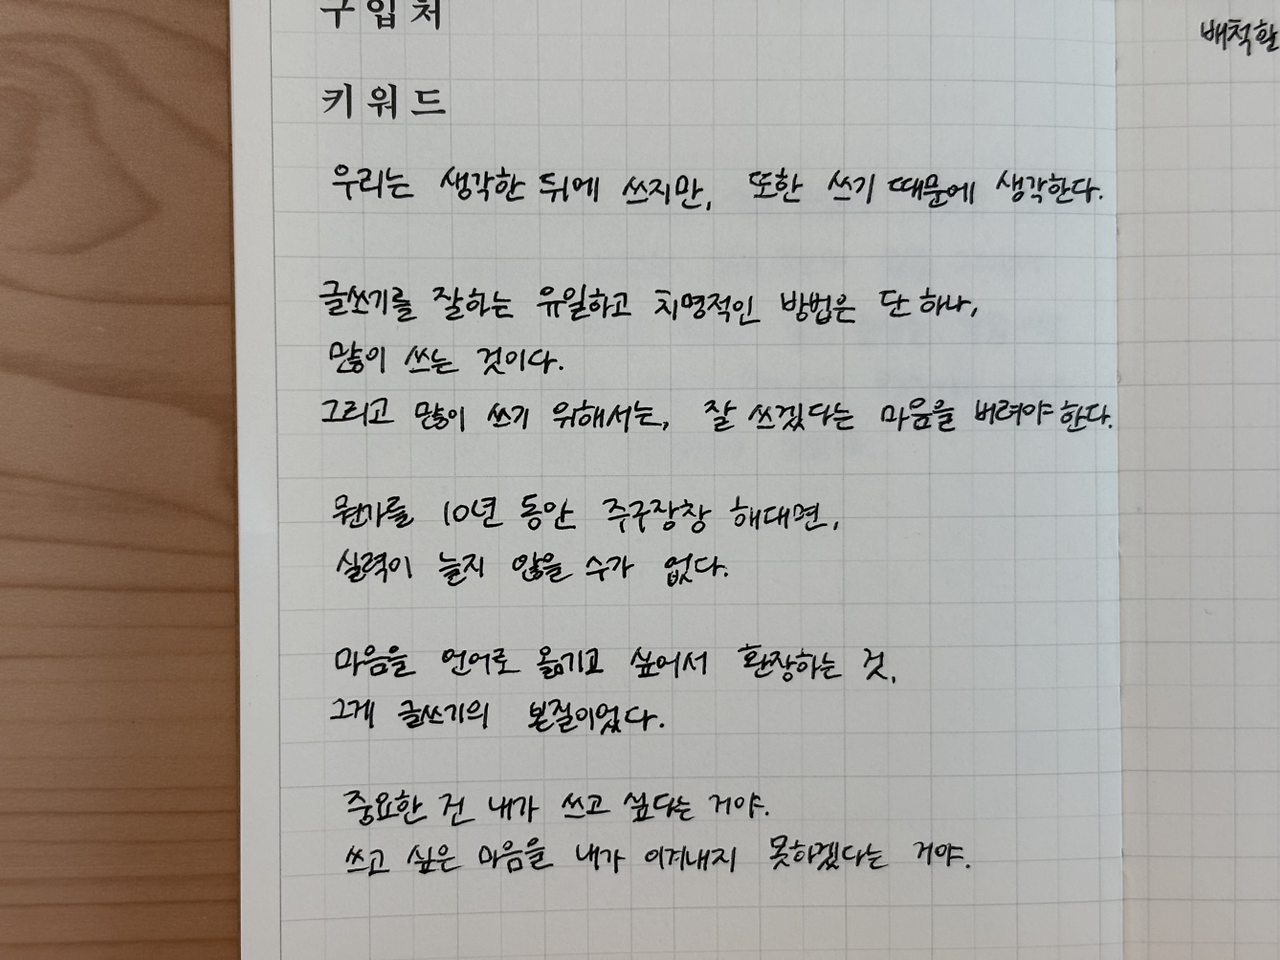 구입처
키워드
우리는 생각한 뒤에 쓰지만, 또한 쓰기 때문에 생각한다.
글쓰기를 잘하는 유일하고 치명적인 방법은 단 하나,
많이 쓰는 것이다.
그리고 많이 쓰기 위해서는, 잘 쓰겠다는 마음을 버려야 한다.
뭔가를 10년 동안 주구장창 해대면,
실력이 늘지 않을 수가 없다.
마음을 언어로 옮기고 싶어서 환장하는 것,
그게 글쓰기의 본질이었다.
중요한 건 내가 쓰고 싶다는 거야.
쓰고 싶은 마음을 내가 이겨내지 못하겠다는 거야.
배척할